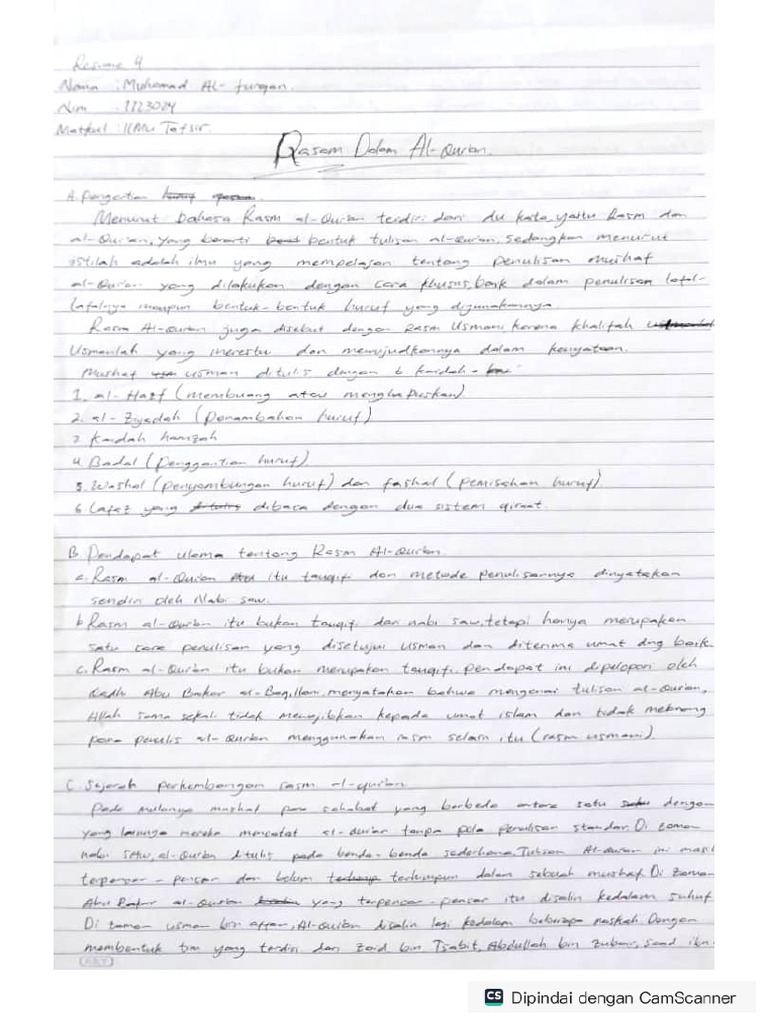 Resume 4
Nama : Muhamad Al-furqan.
Nim : 1123024
Matkul : Ilmu Tafsir.
Rasam Dalam Al-Quran.
A. Pengertian
Menurut bahasa Rasm al-Qur'an terdiri dari du kata yaitu Rasm dan
al-Qur'an, yang berarti bentuk tulisan al-Qur'an, sedangkan menurut
istilah adalah ilmu yang mempelajari tentang penulisan mushaf
al-Qur'an yang dilakukan dengan cara khusus, baik dalam penulisan lafal-
lafalnya maupun bentuk-bentuk huruf yang digunakannya.
Rasm Al-Qur'an juga disebut dengan Rasm Usmani karena khalifah
Usmanlah yang merestui dan mewujudkannya dalam kenyataan.
Mushaf usman ditulis dengan 6 kaidah-
1. al-Hazf (membuang atau menghapuskan)
2. al-Ziyadah (Penambahan huruf)
3 Kaidah hamzah
4. Badal (Penggantian huruf)
5. Washal (penyambungan huruf) dan fashal (pemisahan huruf)
6. Lafaz yang dibaca dengan dua sistem qiraat.
B. Pendapat ulama tentang Rasm Al-Qur'an.
a. Rasm al-Qur'an itu tauqifi dan metode penulisannya dinyatakan
sendiri oleh Nabi saw.
b. Rasm al-Qur'an itu bukan tauqifi dari nabi saw, tetapi hanya merupakan
satu cara penulisan yang disetujui usman dan diterima umat dng baik
c. Rasm al-Qur'an itu bukan merupakan tauqifi. Pendapat ini dipelopori oleh
Qadhi Abu Bakar al-Baqillani, menyatakan bahwa mengenai tulisan al-Qur'an,
Allah sama sekali tidak mewajibkan kepada umat islam dan tidak melarang
para penulis al-Qur'an menggunakan rasm selain itu (rasm usmani).
C. Sejarah perkembangan rasm al-qur'an
Pada mulanya mushaf para sahabat yang berbeda antara satu dengan
yang lainnya mereka mencatat al-Qur'an tanpa pola penulisan standar. Di zaman
nabi saw, al-Qur'an ditulis pada benda-benda sederhana. Tulisan Al-Quran ini masi
terpencar-pencar dan belum terhimpun dalam sebuah mushaf. Di zaman
Abu Bakar al-Qur'an yang terpencar-pencar itu disalin kedalam suhuf
Di zaman usman bin affan, Al-Qur'an disalin lagi kedalam beberapa naskah. Dengan
membentuk tim yang terdiri dari Zaid bin Tsabit, Abdullah bin Zubair, Saad ibn
CS Dipindai dengan CamScanner